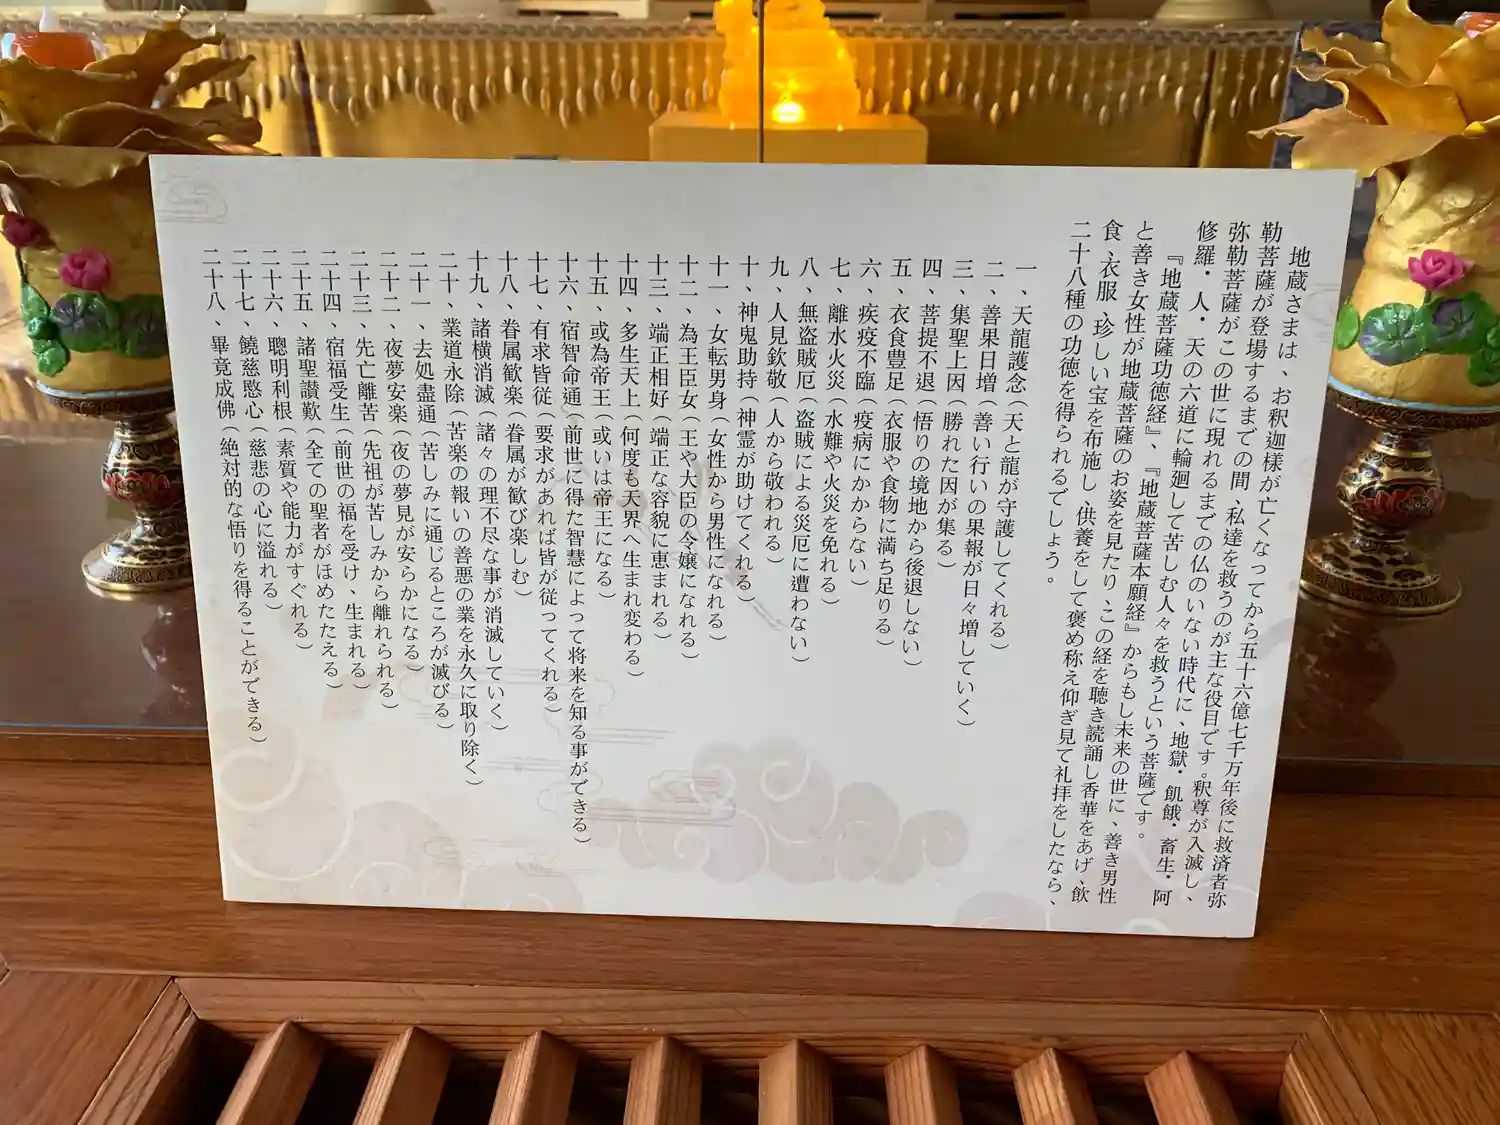 地蔵さまは、お釈迦様が亡くなってから五十六億七千万年後に救済者弥
勒菩薩が登場するまでの間、私達を救うのが主な役目です。釈尊が入滅し、
弥勒菩薩がこの世に現れるまでの仏のいない時代に、地獄・飢餓・畜生・阿
修羅・人・天の六道に輪廻して苦しむ人々を救うという菩薩です。
『地蔵菩薩功徳経』、『地蔵菩薩本願経』からもし未来の世に、善き男性
と善き女性が地蔵菩薩のお姿を見たり、この経を聴き読誦し香華をあげ、飲
食、衣服、珍しい宝を布施し、供養をして褒め称え仰ぎ見て礼拝をしたなら、
二十八種の功徳を得られるでしょう。
一、天龍護念（天と龍が守護してくれる）
二、善果日増（善い行いの果報が日々増していく）
三、集聖上因（勝れた因が集る）
四、菩提不退（悟りの境地から後退しない）
五、衣食豊足（衣服や食物に満ち足りる）
六、疾疫不臨（疫病にかからない）
七、離水火災（水難や火災を免れる）
八、無盗賊厄（盗賊による災厄に遭わない）
九、人見欽敬（人から敬われる）
十、神鬼助持（神霊が助けてくれる）
十一、女転男身（女性から男性になれる）
十二、為王臣女（王や大臣の令嬢になれる）
十三、端正相好（端正な容貌に恵まれる）
十四、多生天上（何度も天界へ生まれ変わる）
十五、或為帝王（或いは帝王になる）
十六、宿智命通（前世に得た智慧によって将来を知る事ができる）
十七、有求皆従（要求があれば皆が従ってくれる）
十八、眷属歓楽（眷属が歓び楽しむ）
十九、諸横消滅（諸々の理不尽な事が消滅していく）
二十、業道永除（苦楽の報いの善悪の業を永久に取り除く）
二十一、去処盡通（苦しみに通じるところが滅びる）
二十二、夜夢安楽（夜の夢見が安らかになる）
二十三、先亡離苦（先祖が苦しみから離れられる）
二十四、宿福受生（前世の福を受け、生まれる）
二十五、諸聖讃歎（全ての聖者がほめたたえる）
二十六、聰明利根（素質や能力がすぐれる）
二十七、饒慈愍心（慈悲の心に溢れる）
二十八、畢竟成佛（絶対的な悟りを得ることができる）